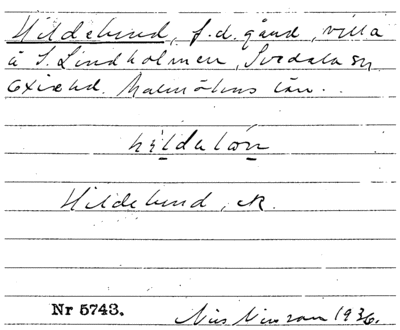 Hildelund, f.d. gård, villa
å S. Lindholmen, Svedala sn
Oxie hd. Malmöhus län.
hildalón
Hildelund, ck.
Nr 5743. 1936.